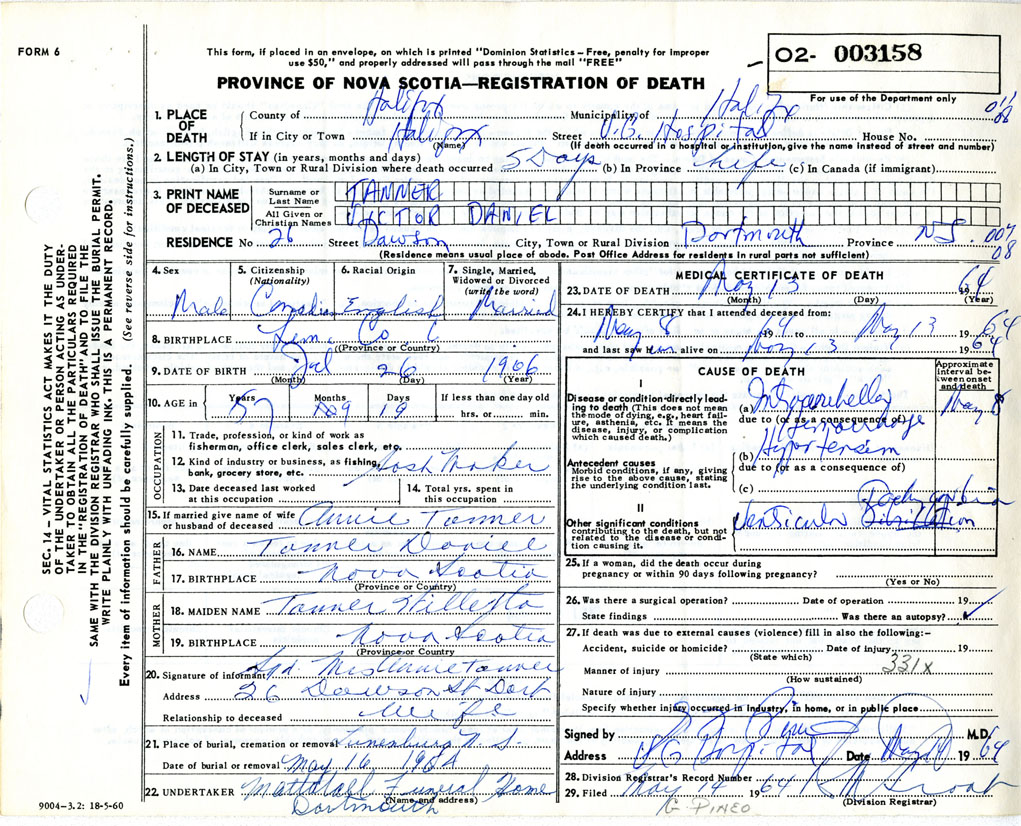 FORM 6
This form, if placed in an envelope, on which is printed "Dominion Statistics – Free, penalty for improper
use $50," and properly addressed will pass through the mail "FREE"
02- 003158
PROVINCE OF NOVA SCOTIA—REGISTRATION OF DEATH
For use of the Department only
1. PLACE OF DEATH
County of Halifax Municipality of Halifax
If in City or Town Halifax Street V.G. Hospital House No.
(Name) (If death occurred in a hospital or institution, give the name instead of street and number)
2. LENGTH OF STAY (in years, months and days)
(a) In City, Town or Rural Division where death occurred 5 Days (b) In Province Life (c) In Canada (if immigrant)
3. PRINT NAME OF DECEASED
Surname or Last Name TANNER
All Given or Christian Names VICTOR DANIEL
RESIDENCE No 26 Street Dawson City, Town or Rural Division Dartmouth Province N.S. 007
(Residence means usual place of abode. Post Office Address for residents in rural parts not sufficient) 08
4. Sex Male
5. Citizenship (Nationality) Canadian
6. Racial Origin English
7. Single, Married, Widowed or Divorced (write the word) Married
8. BIRTHPLACE Co
(Province or Country)
9. DATE OF BIRTH Jul 26 1906
(Month) (Day) (Year)
10. AGE in Years 57 Months 9 Days 19 If less than one day old
hrs. or min.
OCCUPATION
11. Trade, profession, or kind of work as
fisherman, office clerk, sales clerk, etc.
12. Kind of industry or business, as fishing, Sash Maker
bank, grocery store, etc.
13. Date deceased last worked
at this occupation
14. Total yrs. spent in
this occupation
15. If married give name of wife
or husband of deceased Annie Tanner
FATHER
16. NAME Tanner Daniel
17. BIRTHPLACE Nova Scotia
(Province or Country)
MOTHER
18. MAIDEN NAME Tanner
19. BIRTHPLACE Nova Scotia
(Province or Country
20. Signature of informant Sgd. Mrs Annie Tanner
Address 26 Dawson St Dart
Relationship to deceased Wife
21. Place of burial, cremation or removal Lunenburg N.S.
Date of burial or removal May 16 1964
22. UNDERTAKER Mattatall Funeral Home
(Name and address)
Dartmouth
9004–3.2: 18-5-60
MEDICAL CERTIFICATE OF DEATH
23. DATE OF DEATH May 13 1964
(Month) (Day) (Year)
24. I HEREBY CERTIFY that I attended deceased from:
May 8 1964 to May 13 1964
and last saw him alive on May 13 1964
CAUSE OF DEATH
Approximate interval between onset and death
I
Disease or condition directly leading to death (This does not
mean the mode of dying, e.g., heart failure, asthenia, etc. It means the
disease, injury, or complication
which caused death.)
(a) Intracerebellar Hemorrhage May 8
due to (or as a consequence of)
Antecedent causes
Morbid conditions, if any, giving
rise to the above cause, stating
the underlying condition last.
(b) Hypertension
due to (or as a consequence of)
(c)
II
Other significant conditions
contributing to the death, but not
related to the disease or condition causing it.
Ventricular Tachycardia
25. If a woman, did the death occur during
pregnancy or within 90 days following pregnancy?
(Yes or No)
26. Was there a surgical operation? Date of operation 19
State findings Was there an autopsy? ✓
27. If death was due to external causes (violence) fill in also the following:–
Accident, suicide or homicide? Date of injury 19
(State which) 331X
Manner of injury
(How sustained)
Nature of injury
Specify whether injury occurred in industry, in home, or in public place
Signed by M.D.
Address VG Hospital Date May 1964
28. Division Registrar's Record Number
29. Filed May 14 1964
(Division Registrar)
G. PINEO
SEC. 14 – VITAL STATISTICS ACT MAKES IT THE DUTY
OF THE UNDERTAKER OR PERSON ACTING AS UNDERTAKER
TO OBTAIN ALL THE PARTICULARS REQUIRED
IN THE "REGISTRATION OF DEATH" AND TO FILE THE
SAME WITH THE DIVISION REGISTRAR WHO SHALL ISSUE THE BURIAL PERMIT.
WRITE PLAINLY WITH UNFADING INK. THIS IS A PERMANENT RECORD.
Every item of information should be carefully supplied. (See reverse side for instructions.)